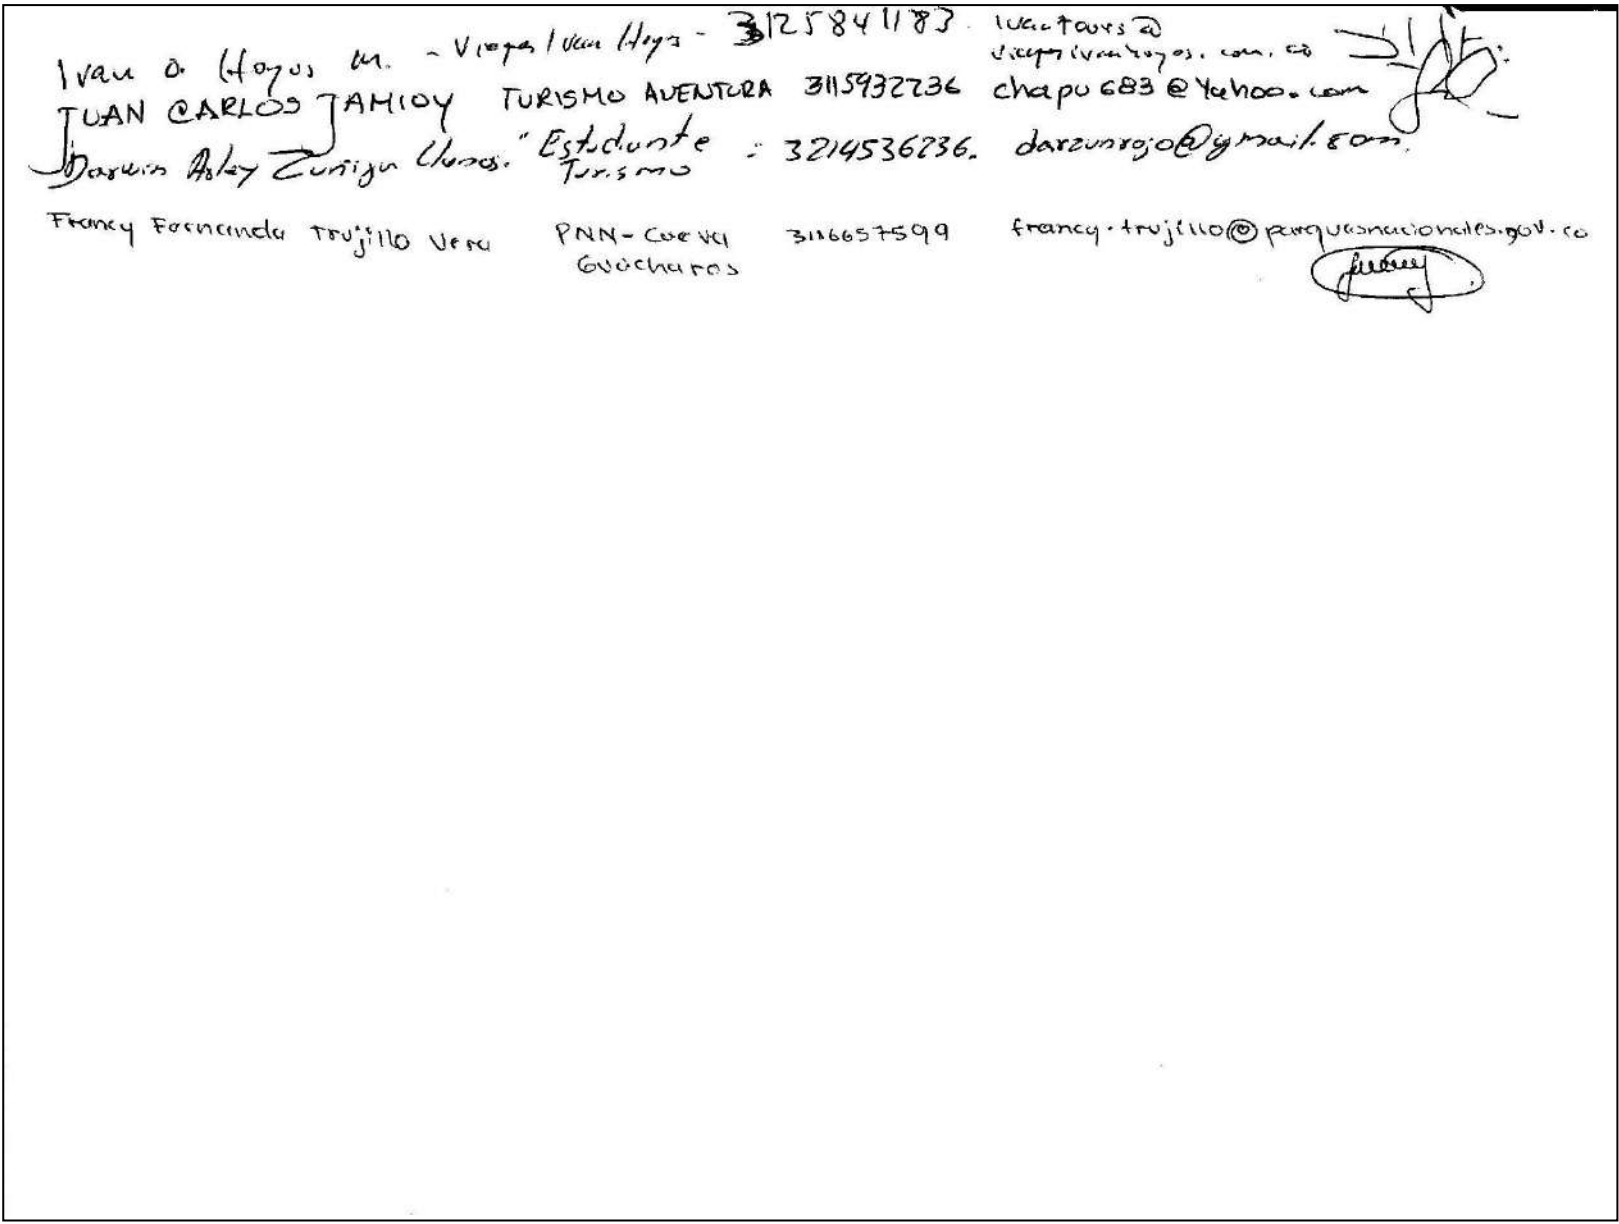 Ivan O. Hoyos M. - Viajes Ivan Hoyos - 3125841183. ivantours@
viajesivanhoyos.com.co
JUAN CARLOS JAMIOY TURISMO AVENTURA 3115932736 chapu683@Yahoo.com
Darwin Arley Zuñiga Llanos. "Estudiante : 3214536236. darzunrojo@gmail.com.
Turismo
Francy Fernanda Trujillo Vera PNN-Cueva 3116657599 francy.trujillo@parquesnacionales.gov.co
Guácharos